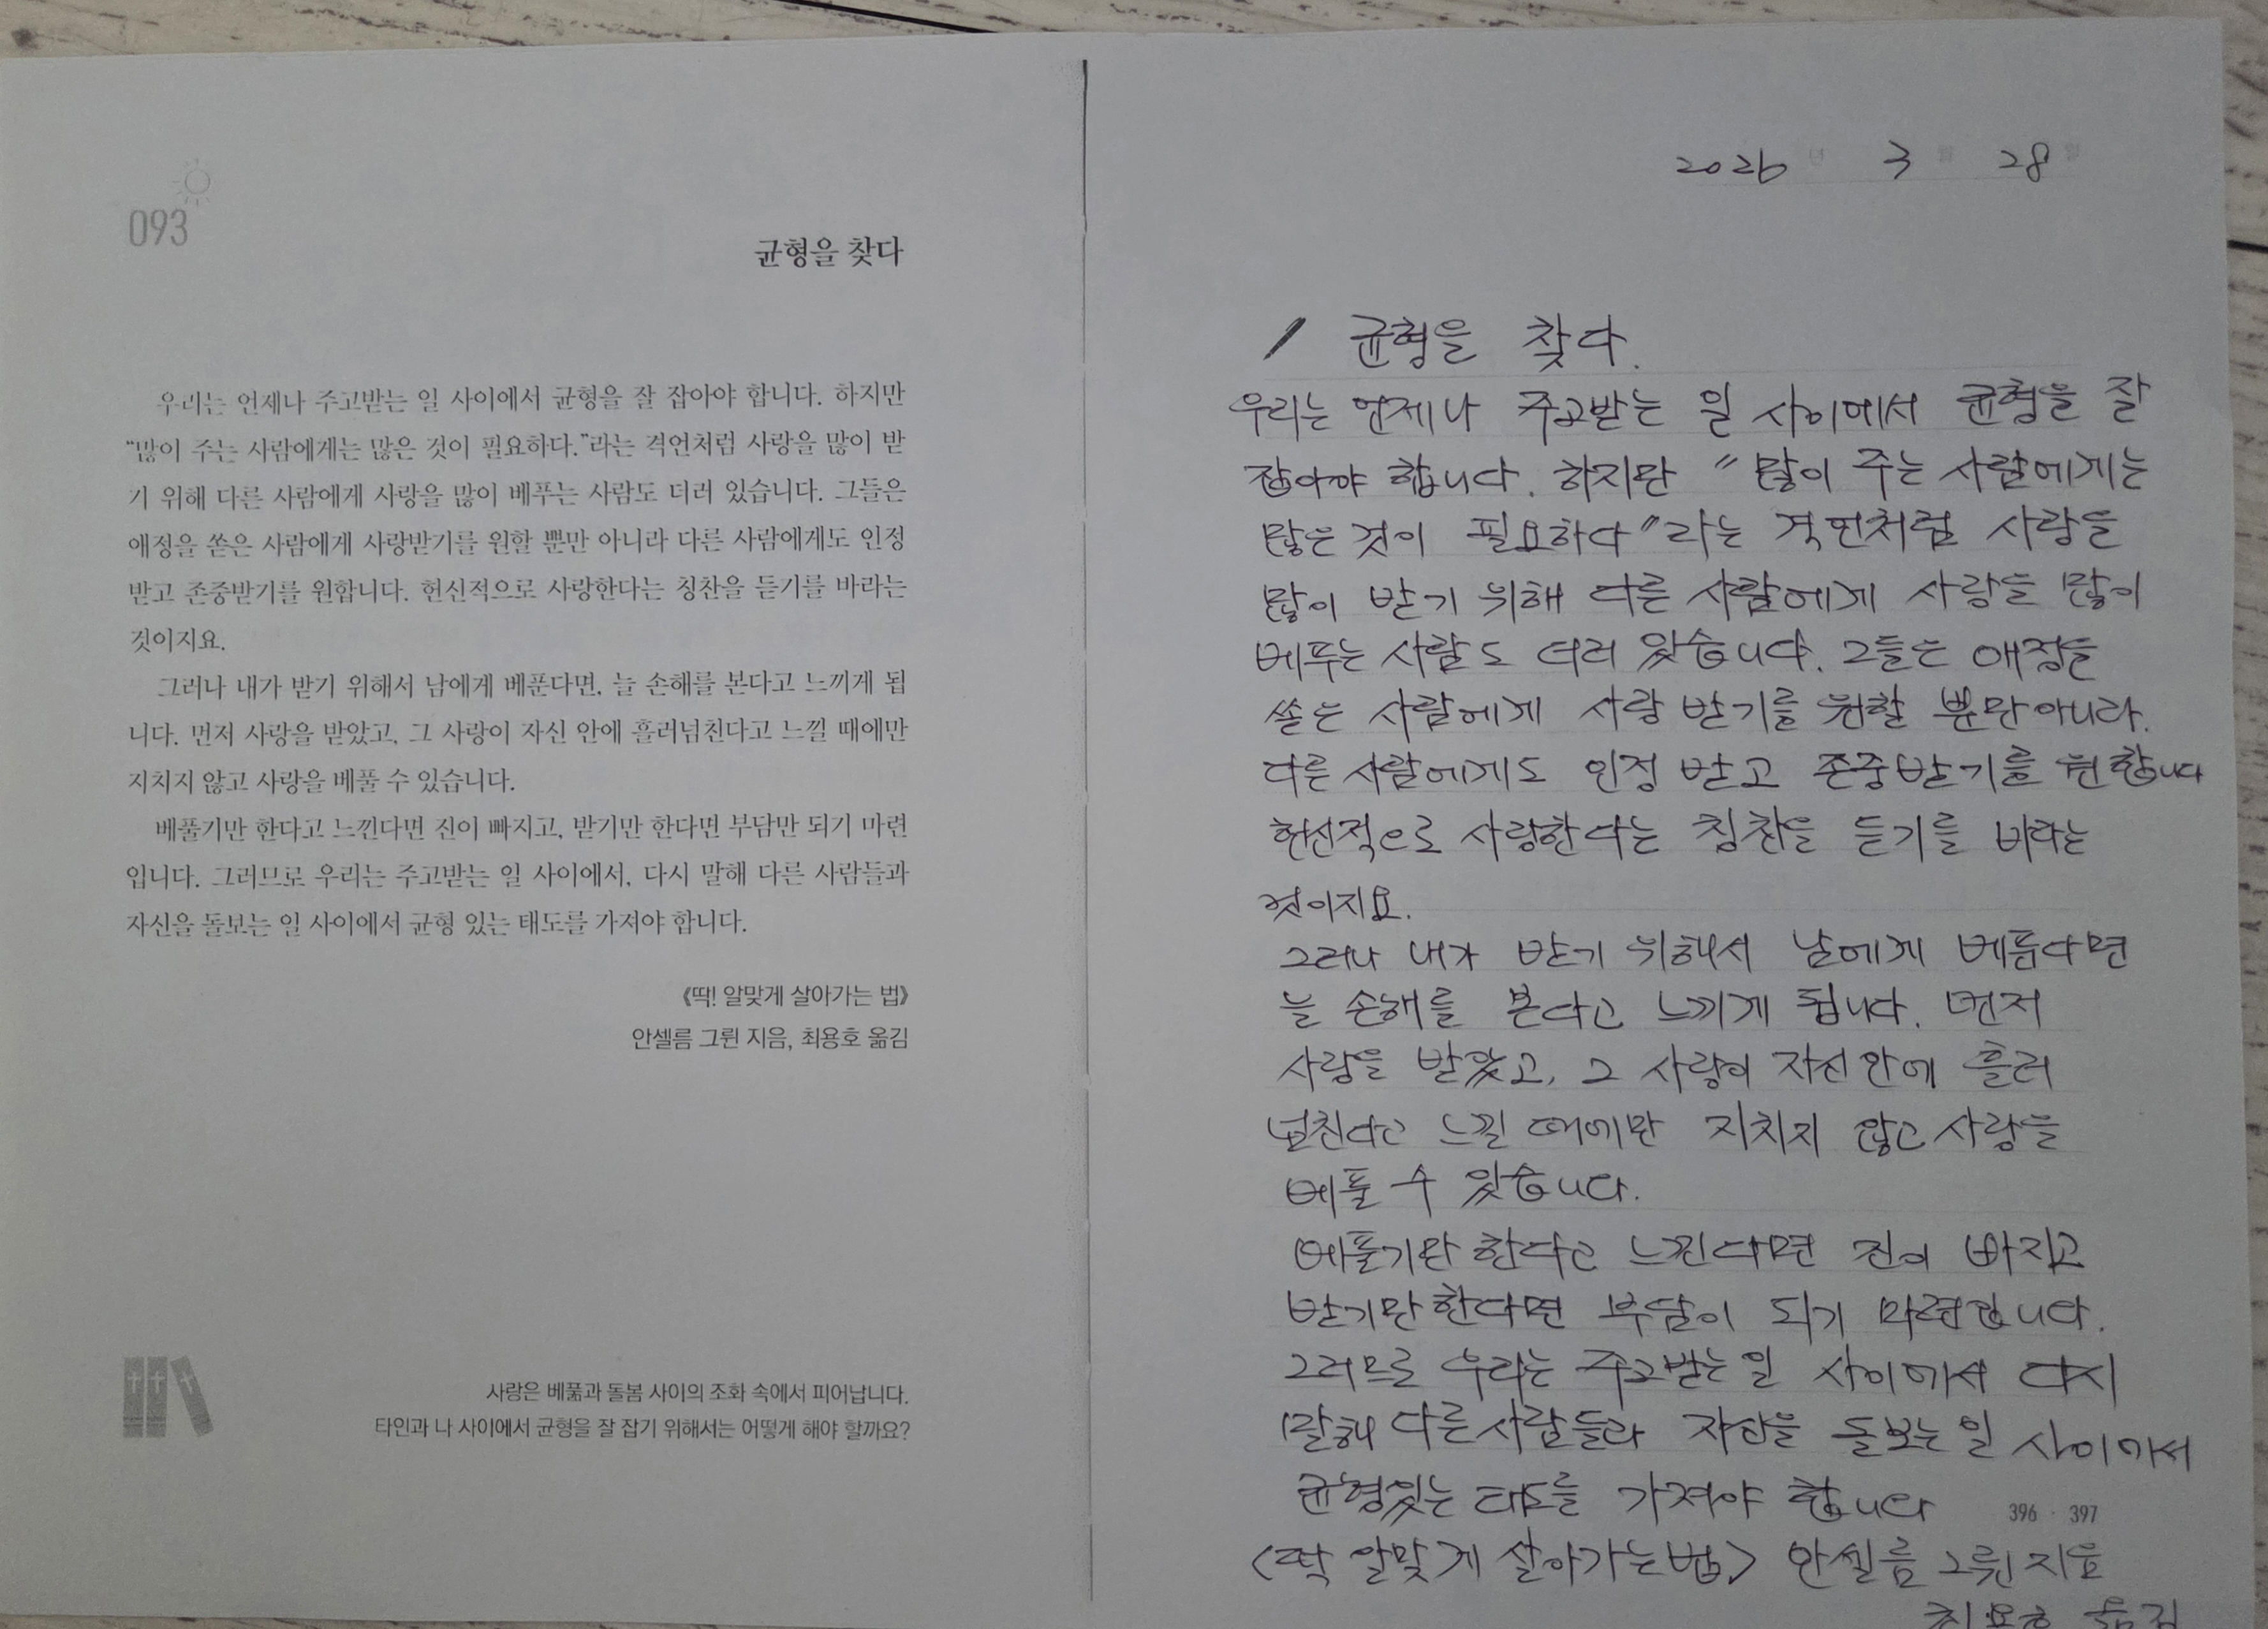 093
균형을 찾다
우리는 언제나 주고받는 일 사이에서 균형을 잘 잡아야 합니다. 하지만
“많이 주는 사람에게는 많은 것이 필요하다.”라는 격언처럼 사랑을 많이 받
기 위해 다른 사람에게 사랑을 많이 베푸는 사람도 더러 있습니다. 그들은
애정을 쏟은 사람에게 사랑받기를 원할 뿐만 아니라 다른 사람에게도 인정
받고 존중받기를 원합니다. 헌신적으로 사랑한다는 칭찬을 듣기를 바라는
것이지요.
그러나 내가 받기 위해서 남에게 베푼다면, 늘 손해를 본다고 느끼게 됩
니다. 먼저 사랑을 받았고, 그 사랑이 자신 안에 흘러넘친다고 느낄 때에만
지치지 않고 사랑을 베풀 수 있습니다.
베풀기만 한다고 느낀다면 진이 빠지고, 받기만 한다면 부담만 되기 마련
입니다. 그러므로 우리는 주고받는 일 사이에서, 다시 말해 다른 사람들과
자신을 돌보는 일 사이에서 균형 있는 태도를 가져야 합니다.
《딱! 알맞게 살아가는 법》
안셀름 그륀 지음, 최용호 옮김
사랑은 베풂과 돌봄 사이의 조화 속에서 피어납니다.
타인과 나 사이에서 균형을 잘 잡기 위해서는 어떻게 해야 할까요?
2026 년 3 월 28 일
/ 균형을 찾다.
우리는 언제나 주고받는 일 사이에서 균형을 잘
잡아야 합니다. 하지만 "많이 주는 사람에게는
많은 것이 필요하다"라는 격언처럼 사랑을
많이 받기 위해 다른 사람에게 사랑을 많이
베푸는 사람도 더러 있습니다. 그들은 애정을
쏟은 사람에게 사랑 받기를 원할 뿐만아니라.
다른 사람에게도 인정 받고 존중받기를 원합니다
헌신적으로 사랑한다는 칭찬을 듣기를 바라는
것이지요.
그러나 내가 받기 위해서 남에게 베푼다면
늘 손해를 본다고 느끼게 됩니다. 먼저
사랑을 받았고, 그 사랑이 자신 안에 흘러
넘친다고 느낄 때에만 지치지 않고 사랑을
베풀 수 있습니다.
베풀기만 한다고 느낀다면 진이 빠지고
받기만 한다면 부담이 되기 마련입니다.
그러므로 우리는 주고받는 일 사이에서 다시
말해 다른 사람들과 자신을 돌보는 일 사이에서
균형있는 태도를 가져야 합니다
396 · 397
<딱 알맞게 살아가는법> 안셀름 그륀 지음
최용호 옮김